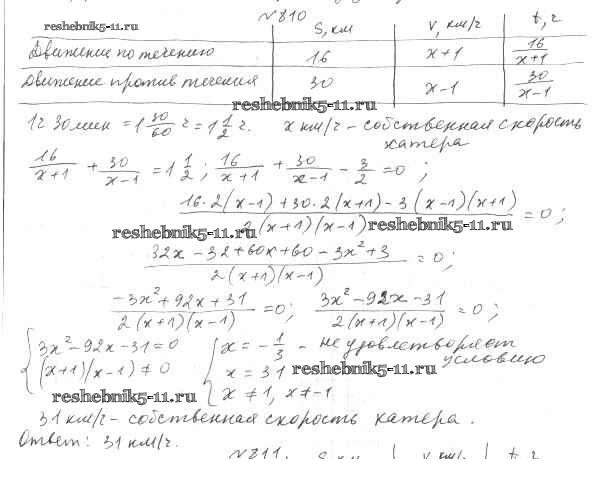 №810
reshebnik5-11.ru S, км V, км/ч t, ч
Движение по течению 16 x+1 16/(x+1)
Движение против течения 30 x-1 30/(x-1)
reshebnik5-11.ru
1ч 30мин = 1 30/60 ч = 1 1/2 ч. x км/ч - собственная скорость
катера
16/(x+1) + 30/(x-1) = 1 1/2 ; 16/(x+1) + 30/(x-1) - 3/2 = 0 ;
(16·2(x-1)+30·2(x+1)-3(x-1)(x+1))/(2(x+1)(x-1)) = 0 ;
reshebnik5-11.ru reshebnik5-11.ru
(32x-32+60x+60-3x²+3)/(2(x+1)(x-1)) = 0 ;
(-3x²+92x+31)/(2(x+1)(x-1)) = 0 ; (3x²-92x-31)/(2(x+1)(x-1)) = 0 ;
{ 3x²-92x-31=0 { x = -1/3 - не удовлетворяет
условию
(x+1)(x-1) ≠ 0 x = 31 reshebnik5-11.ru
reshebnik5-11.ru x ≠ 1, x ≠ -1
31 км/ч - собственная скорость катера .
Ответ: 31 км/ч.
№811. S, км V, км/ч t, ч